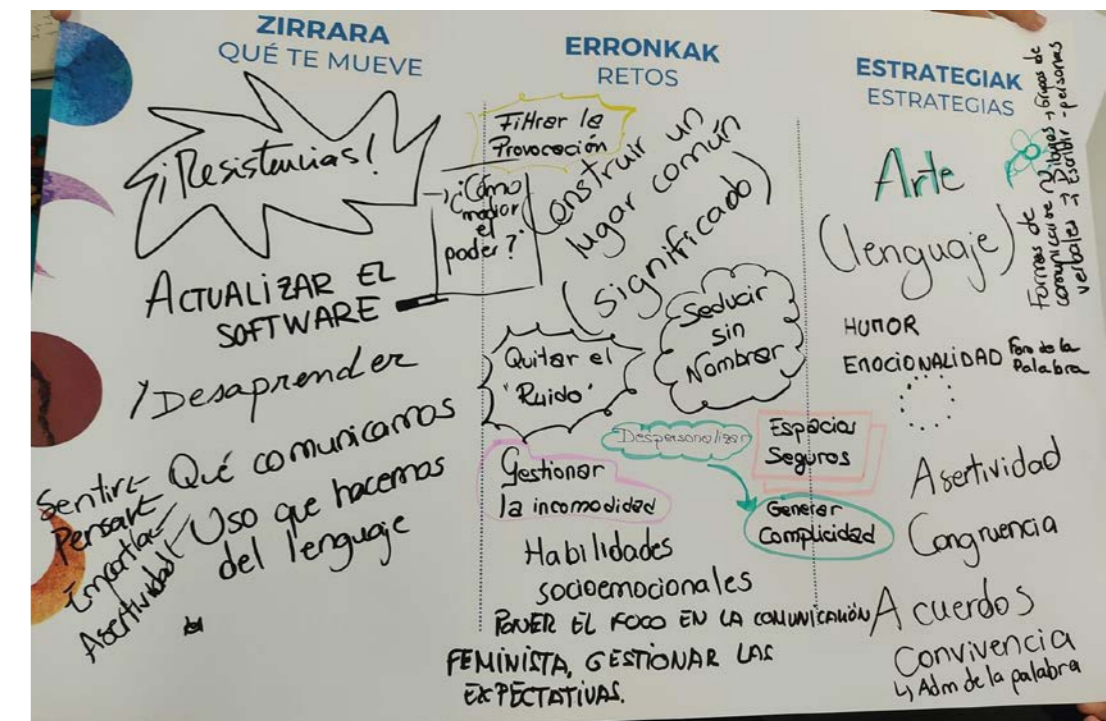 ZIRRARA
QUÉ TE MUEVE
¡Resistencias!
ACTUALIZAR EL
SOFTWARE
Desaprender
Qué comunicamos
Uso que hacemos
del lenguaje
Sentir
Pensar
Asertividad
ERRONKAK
RETOS
Filtrar la
Provocación
¿Cómo
medior
el
poder?
Construir un
lugar común
(significado)
Quitar el
"Ruido"
Seducir
sin
Nombrar
Despersonalizar
Gestionar
la incomodidad
Espacios
Seguros
Generar
Complicidad
Habilidades
socioemocionales
PONER EL FOCO EN LA COMUNICACIÓN
FEMINISTA, GESTIONAR LAS
EXPECTATIVAS.
ESTRATEGIAK
ESTRATEGIAS
Arte
(lenguaje)
Formas de
comunicarse no
verbales
→ Dibujos → Grupos de
→ Escribir - personas
HUMOR
EMOCIONALIDAD
Foro de la
Palabra
Asertividad
Congruencia
Acuerdos
Convivencia
↳ Adm de la palabra